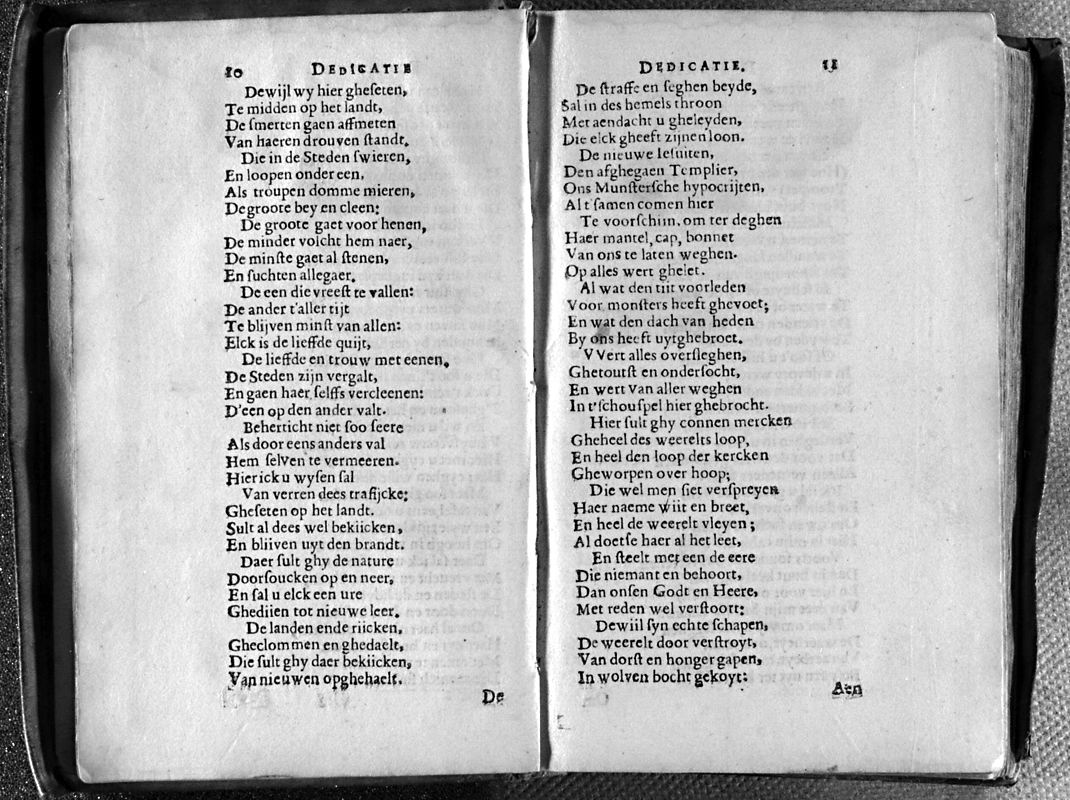 10 DEDICATIE
Dewijl wy hier gheſeten,
Te midden op het landt,
De ſmerten gaen affmeten
Van haeren drouven ſtandt.
Die in de Steden ſwieren,
En loopen onder een,
Als troupen domme mieren,
De groote bey en cleen:
De groote gaet voor henen,
De minder volcht hem naer,
De minſte gaet al ſtenen,
En ſuchten allegaer.
De een die vreeſt te vallen:
De ander t'aller tijt
Te blijven minſt van allen:
Elck is de lieffde quijt,
De lieffde en trouw met eenen,
De Steden zijn vergalt,
En gaen haer ſelffs vercleenen:
D'een op den ander valt.
Beherticht niet ſoo ſeere
Als door eens anders val
Hem ſelVen te vermeeren.
Hier ick u wyſen ſal
Van verren dees trafijcke:
Gheſeten op het landt.
Sult al dees wel bekiicken,
En bliiven uyt den brandt.
Daer ſult ghy de nature
Doorſoucken op en neer,
En ſal u elck een ure
Ghediien tot nieuwe leer.
De landen ende riicken,
Gheclommen en ghedaelt,
Die ſult ghy daer bekiicken,
Van nieuwen opghehaelt.
De
DEDICATIE. 11
De ſtraffe en ſeghen beyde,
Sal in des hemels throon
Met aendacht u gheleyden,
Die elck gheeft zijnen loon.
De nieuwe Ieſuiten,
Den afghegaen Templier,
Ons Munſterſche hypocrijten,
Al t'ſamen comen hier
Te voorſchiin, om ter deghen
Haer mantel, cap, bonnet
Van ons te laten weghen.
Op alles wert gheiet.
Al wat den tiit voorleden
Voor monſters heeft ghevoet;
En wat den dach van heden
By ons heeft uytghebroet.
VVert alles overſleghen,
Ghetoutſt en onderſocht,
En wert van aller weghen
In t'ſchouſpel hier ghebrocht.
Hier ſult ghy connen mercken
Gheheel des weerelts loop,
En heel den loop der kercken
Gheworpen over hoop;
Die wel men ſiet verſpreyen
Haer naeme wiit en breet,
En heel de weerelt vleyen;
Al doetſe haer al het leet,
En ſteelt met een de eere
Die niemant en behoort,
Dan onſen Godt en Heere,
Met reden wel verſtoort:
Dewiil ſyn echte ſchapen,
De weerelt door verſtroyt,
Van dorſt en honger gapen,
In wolven bocht gekoyt:
Aen